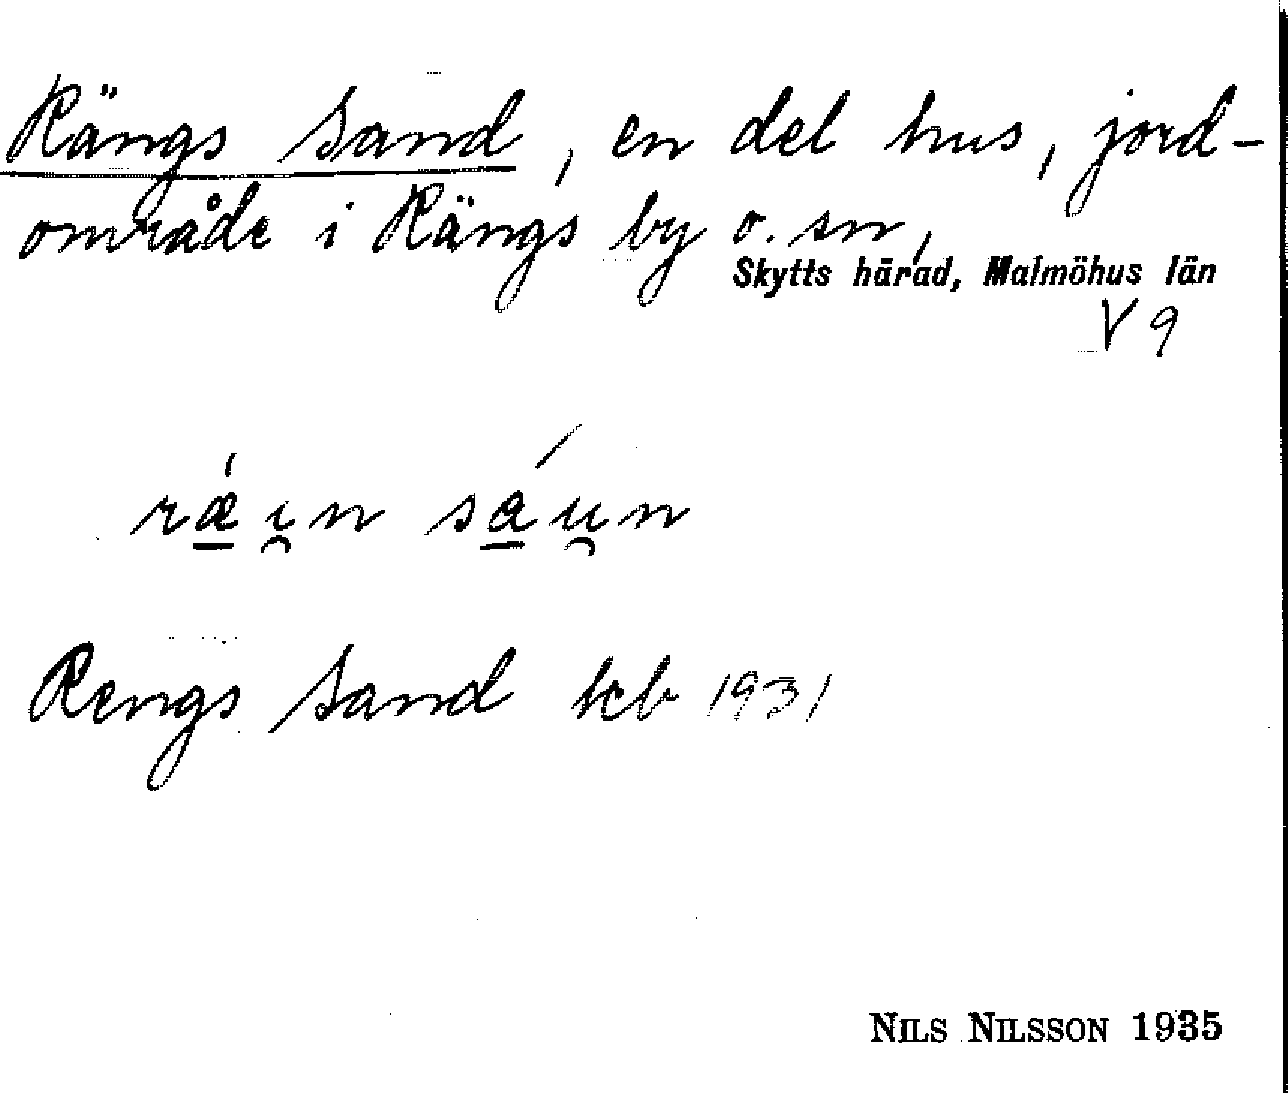 Rängs Sand, en del hus, jord-
område i Rängs by o. sn,
Skytts härad, Malmöhus län
V 9
rǽ̱i̯n sá̱u̯n
Rengs Sand tcb 1931
NILS NILSSON 1935